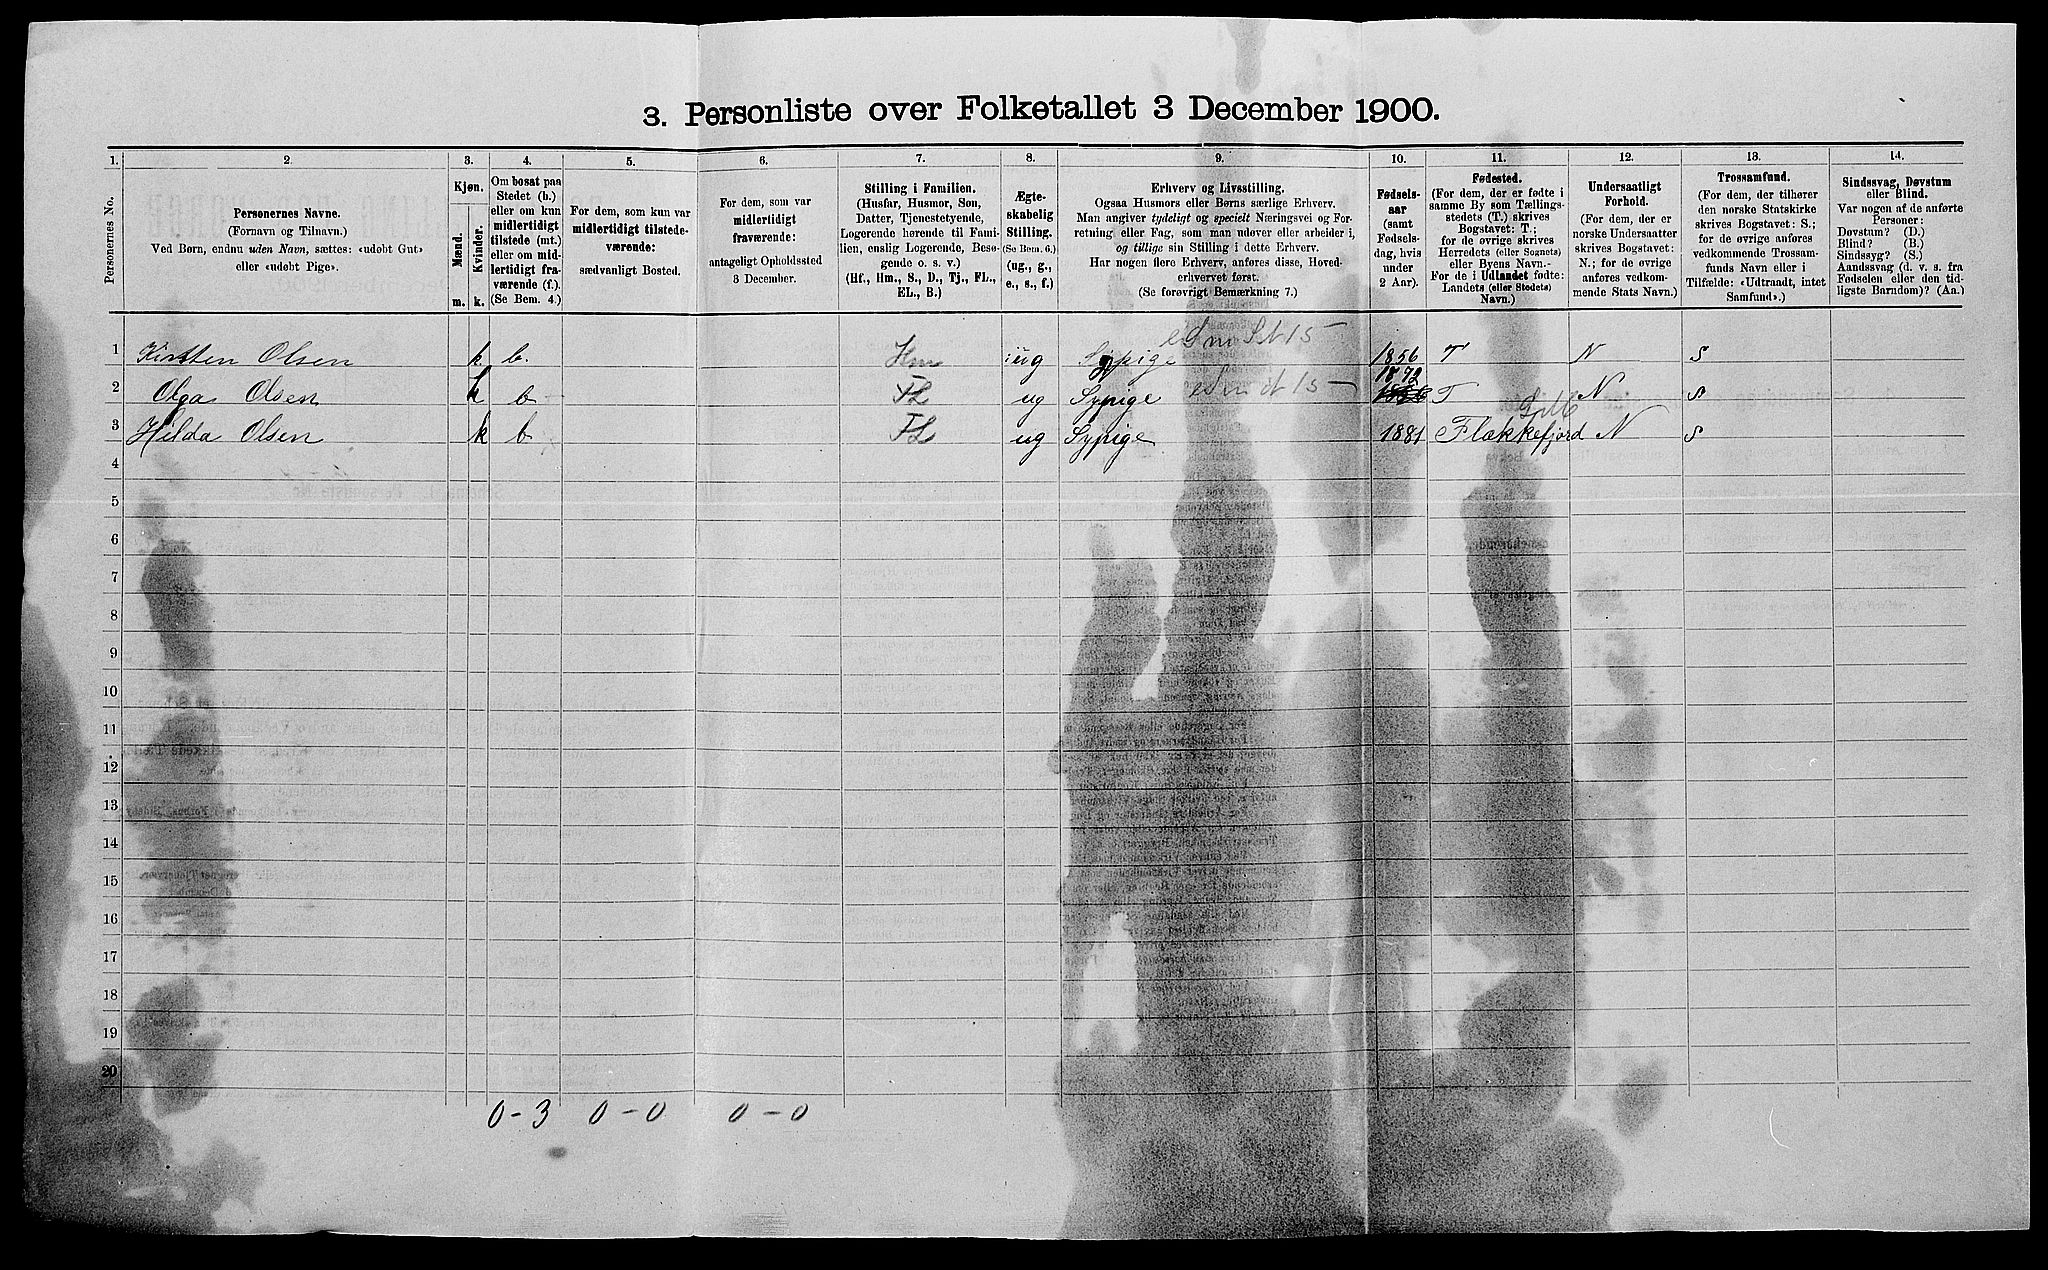 3. Personliste over Folketallet 3 December 1900.
1. 2. 3. 4. 5. 6. 7. 8. 9. 10. 11. 12. 13. 14.
Personernes No.
Personernes Navne.
(Fornavn og Tilnavn.)
Ved Børn, endnu uden Navn, sættes: «udøbt Gut»
eller «udøbt Pige».
Kjøn.
Mænd.
Kvinder.
m. k.
Om bosat paa
Stedet (b.)
eller om kun
midlertidigt
tilstede (mt.)
eller om mid-
lertidigt fra-
værende (f.)
(Se Bem. 4.)
For dem, som kun var
midlertidigt tilstede-
værende:
sædvanligt Bosted.
For dem, som var
midlertidigt
fraværende:
antageligt Opholdssted
3 December.
Stilling i Familien.
(Husfar, Husmor, Søn,
Datter, Tjenestetyende,
Logerende hørende til Fami-
lien, enslig Logerende, Besø-
gende o. s. v.)
(Hf., Hm., S., D., Tj., FL.,
EL., B.)
Ægte-
skabelig
Stilling.
(Se Bem. 6.)
(ug., g.,
e., s., f.)
Erhverv og Livsstilling.
Ogsaa Husmors eller Børns særlige Erhverv.
Man angiver tydeligt og specielt Næringsvei og For-
retning eller Fag, som man udøver eller arbeider i,
og tillige sin Stilling i dette Erhverv.
Har nogen flere Erhverv, anføres disse, Hoved-
erhvervet først.
(Se forøvrigt Bemærkning 7.)
Fødsels-
aar
(samt
Fødsels-
dag, hvis
under
2 Aar).
Fødested.
(For dem, der er fødte i
samme By som Tællings-
stedets (T.) skrives
Bogstavet: T.;
for de øvrige skrives
Herredets (eller Sognets)
eller Byens Navn.-
For de i Udlandet fødte:
Landets (eller Stedets)
Navn.)
Undersaatligt
Forhold.
(For dem, der er
norske Undersaatter
skrives Bogstavet:
N.; for de øvrige
anføres vedkom-
mende Stats Navn.)
Trossamfund.
(For dem, der tilhører
den norske Statskirke
skrives Bogstavet: S.;
for de øvrige anføres
vedkommende Trossam-
funds Navn eller i
Tilfælde: «Udtraadt, intet
Samfund».)
Sindssvag, Døvstum
eller Blind.
Var nogen af de anførte
Personer:
Døvstum? (D.)
Blind? (B.)
Sindssyg? (S.)
Aandssvag (d. v. s. fra
Fødselen eller den tid-
ligste Barndom)? (Aa.)
1 Kirsten Olsen k b. Hm ug Sypige 1856 T N S
2 Olga Olsen k b FL ug Sypige 1872 T N S
3 Hilda Olsen k b FL ug Sypige 1881 Flækkefjord N S
4
5
6
7
8
9
10
11
12
13
14
15
16
17
18
19
20
0-3 0-0 0-0